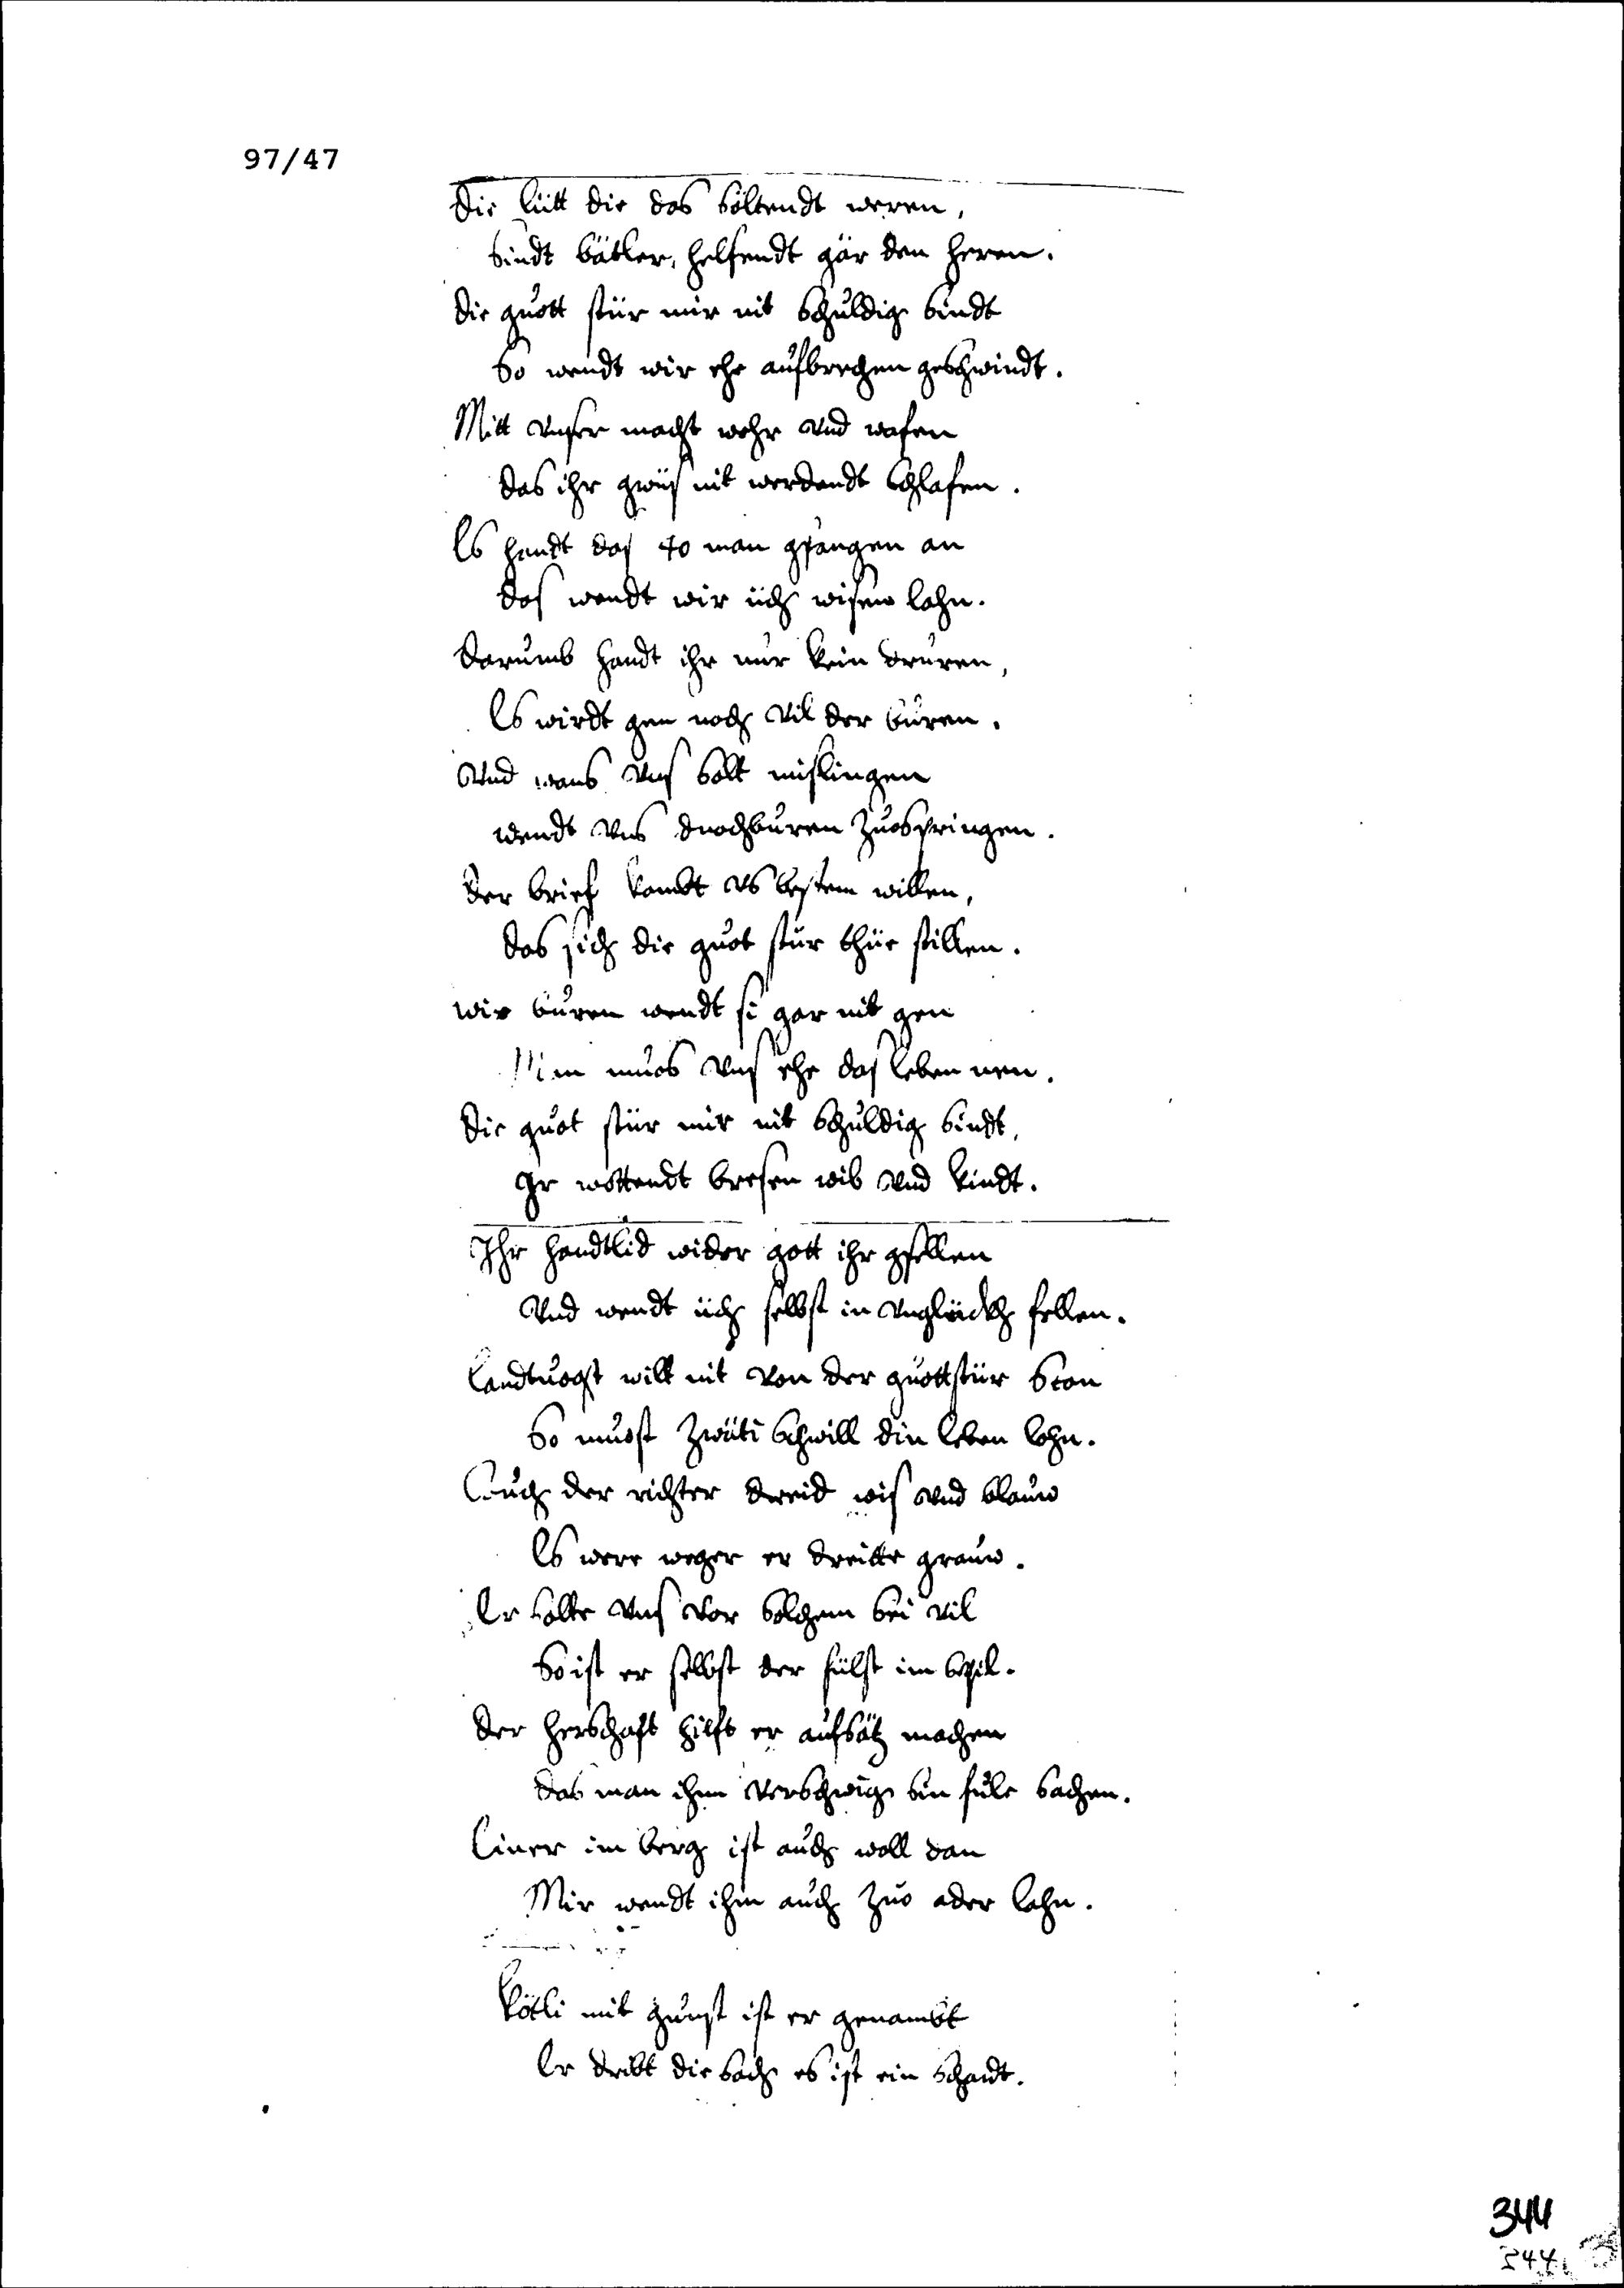 97/47
die lütt die das söltendt weren,
sindt bätler, helfendt gär den heren.
die guott stür mir nit schuldig sindt
So wendt wir ehe aufbrechen geschwindt.
Mitt vnser macht wehr vnd wafen
das ihr gwüs nit werdendt schlafen.
Es handt das 40 man gfangen an
das wendt wir üch wisen lahn.
darumb handt ihr nur kein druren,
Es wirdt gen noch vil der buren.
Vnd wans vns solt mislingen
wendt vns dnachburen zuospringen.
der brief kombt vs bestem willen,
das sich die guot stür thüe stillen.
wir buren wendt si gar nit gen
Min muos vns ehe das leben nen.
die guot stür mir nit schuldig sindt,
Er wöttendt fresen wib vnd kindt.
Ihr handtlid wider gott ihr gsellen
Vnd wendt üch selbst in vnglückh fellen.
Landtuogt wilt nit von der guottstür ston
So muost zwüri schwill din leben lohn.
Auch der richter dreid wis vnd blauw
Es were weger er dreitte grauw.
Er solte vns vor solchem sei vil
So ist er selbst der fülst im spil.
der herschaft hilft er aufsätz machen
das man ihm verschwig sin fule sachen.
Einer im berg ist auch woll dan
Mir wendt ihm auch zuo ader lahn.
Kötli mit gunst ist er genambt
Er dribt die sach es ist ein schandt.
344
344